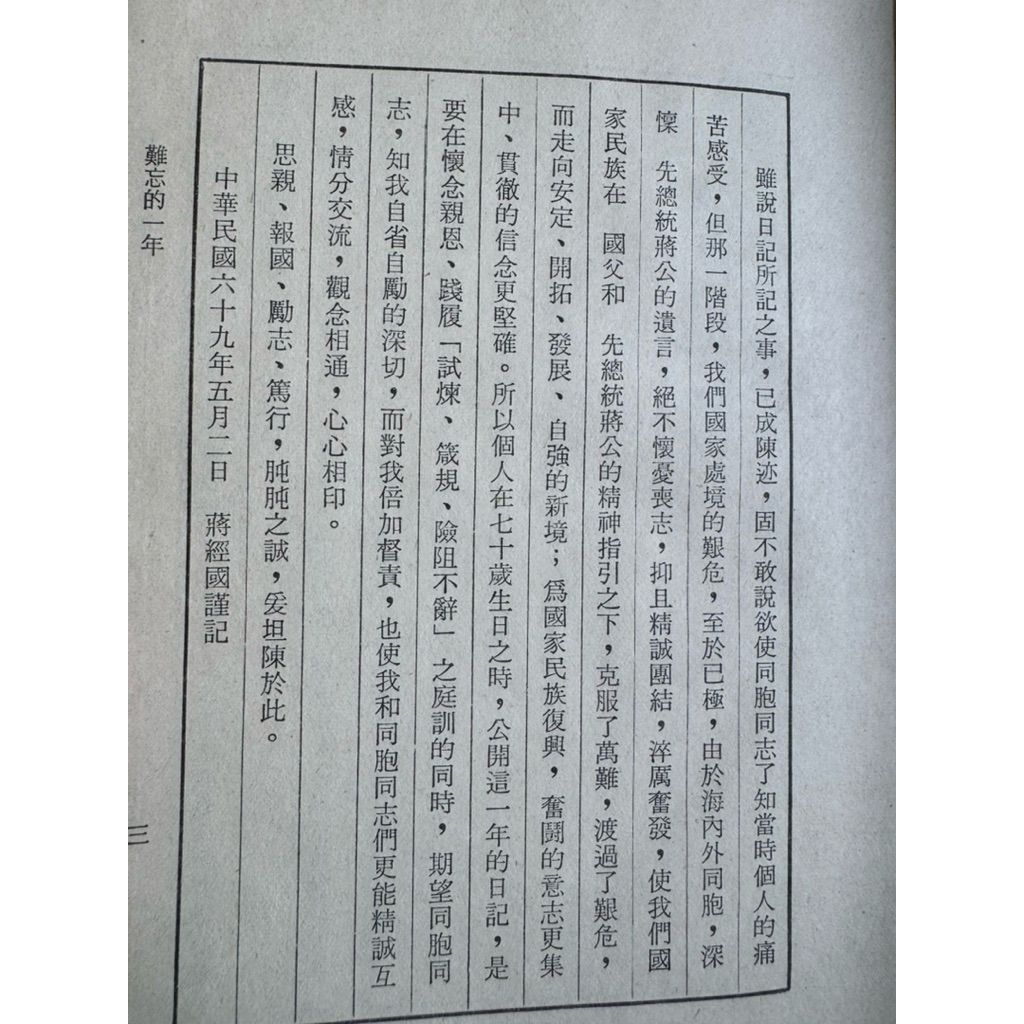 雖說日記所記之事，已成陳迹，固不敢說欲使同胞同志了知當時個人的痛
苦感受，但那一階段，我們國家處境的艱危，至於已極，由於海內外同胞，深
懍　先總統蔣公的遺言，絕不懷憂喪志，抑且精誠團結，淬厲奮發，使我們國
家民族在　國父和　先總統蔣公的精神指引之下，克服了萬難，渡過了艱危，
而走向安定、開拓、發展、自強的新境；爲國家民族復興，奮鬪的意志更集
中、貫徹的信念更堅確。所以個人在七十歲生日之時，公開這一年的日記，是
要在懷念親恩、踐履「試煉、箴規、險阻不辭」之庭訓的同時，期望同胞同
志，知我自省自勵的深切，而對我倍加督責，也使我和同胞同志們更能精誠互
感，情分交流，觀念相通，心心相印。
思親、報國、勵志、篤行，肫肫之誠，爰坦陳於此。
中華民國六十九年五月二日　蔣經國謹記
難忘的一年
三